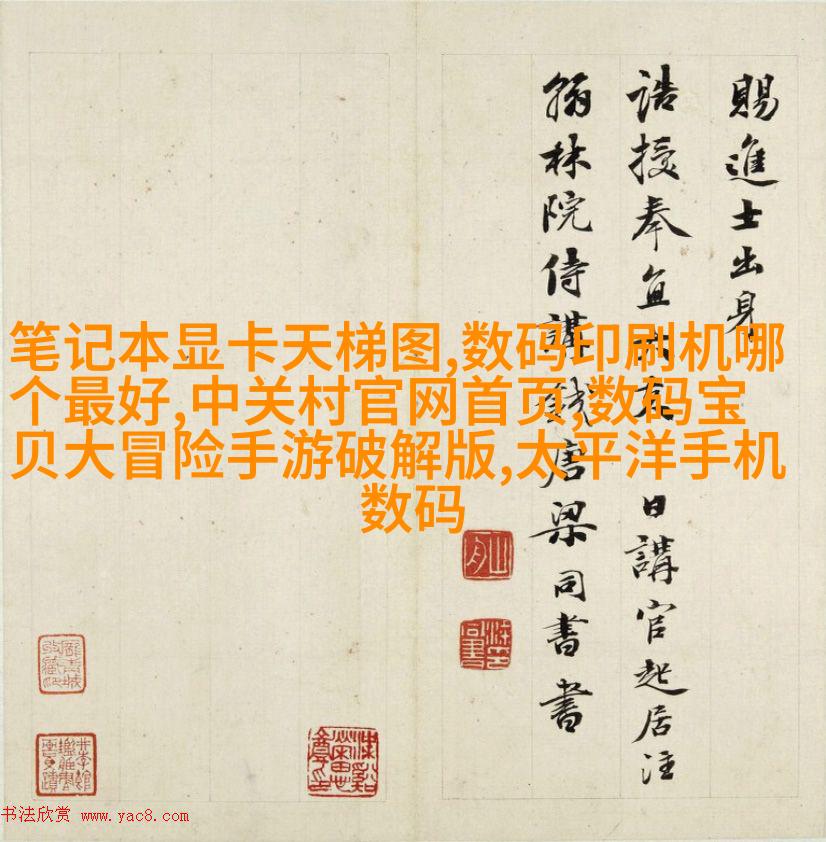 笔记本显卡天梯图,数码印刷机哪
个最好,中关村官网首页,数码宝
贝大冒险手游破解版,太平洋手机
数码
賜進士出身
誥授奉直大夫日講官起居注
翰林院侍講錢唐梁同書書
山舟
书法欣赏 www.yac8.com